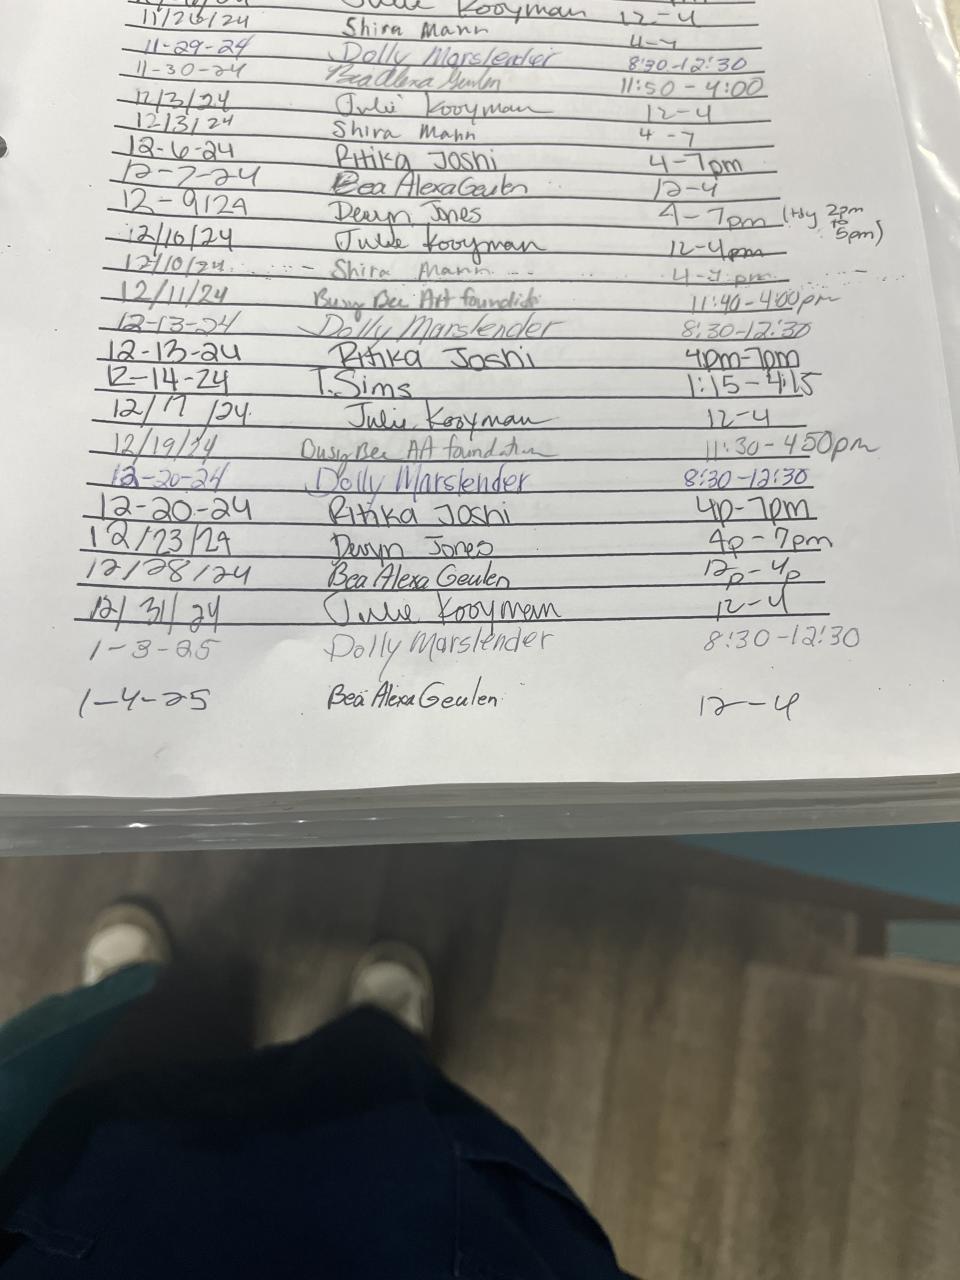 Julie Kooyman 12-4
11/26/24 Shira Mann 4-7
11-29-24 Dolly Marslender 8:30-12:30
11-30-24 Bea Alexa Geulen 11:50-4:00
12/3/24 Julie Kooyman 12-4
12/3/24 Shira Mann 4-7
12-6-24 Ritika Joshi 4-7pm
12-7-24 Bea Alexa Geulen 12-4
12-9/24 Devyn Jones 4-7pm ( 2pm to 5pm)
12/10/24 Julie Kooyman 12-4pm
12/10/24 Shira Mann 4-7 pm
12/11/24 Busy Bee Art 11:40-4:00pm
12-13-24 Dolly Marslender 8:30-12:30
12-13-24 Ritika Joshi 4pm-7pm
12-14-24 T. Sims 1:15-4:15
12/17/24 Julie Kooyman 12-4
12/19/24 Busy Bee Art foundation 11:30-450pm
12-20-24 Dolly Marslender 8:30-12:30
12-20-24 Ritika Joshi 4p-7pm
12/23/24 Devyn Jones 4p-7pm
12/28/24 Bea Alexa Geulen 12p-4p
12/31/24 Julie Kooyman 12-4
1-3-25 Dolly Marslender 8:30-12:30
1-4-25 Bea Alexa Geulen 12-4